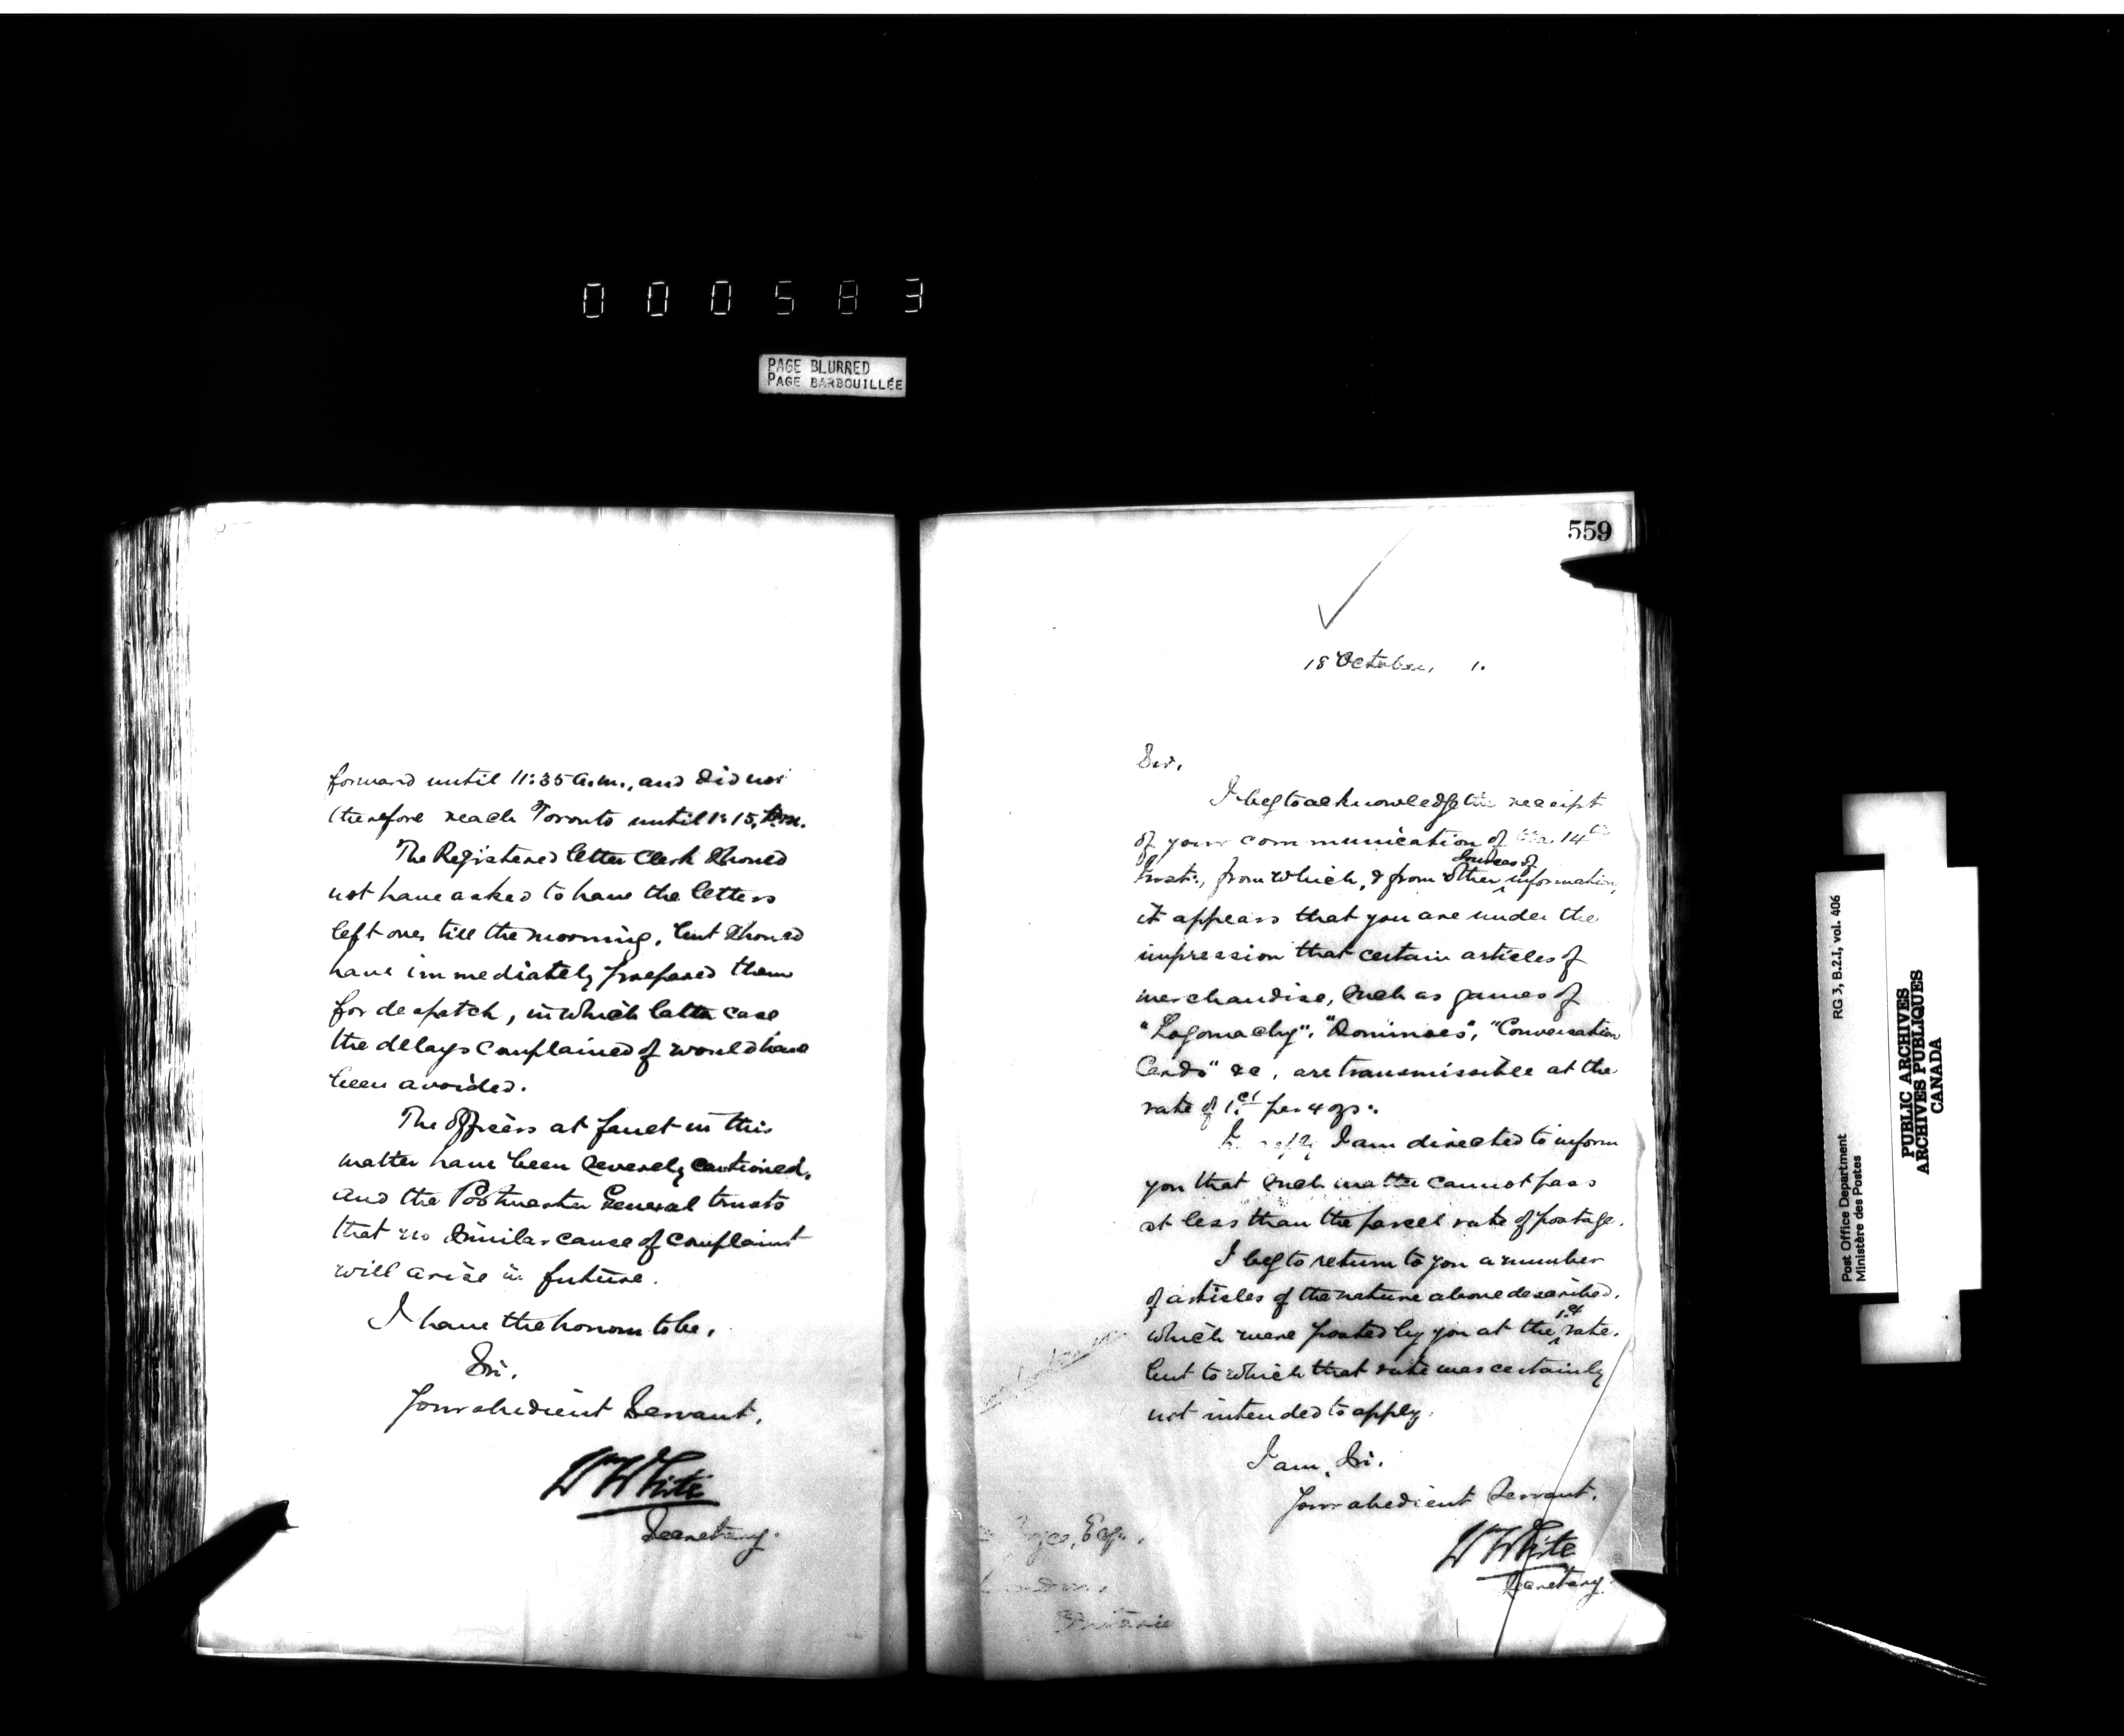 000583
PAGE BLURRED
PAGE BARBOUILLÉE
forward until 11:35 a.m., and did not
therefore reach Toronto until 1:15, p.m.
The Registered letter Clerk should
not have asked to have the letters
left over till the morning, but should
have immediately prepared them
for despatch, in which latter case
the delays complained of would have
been avoided.
The Officers at fault in this
matter have been severely cautioned,
and the Postmaster General trusts
that no similar cause of complaint
will arise in future.
I have the honour to be,
Sir,
Your obedient Servant,
Wm White
Secretary.
559
18 October, 1.
Sir,
I beg to acknowledge the receipt
of your communication of the 14th
Inst:, from which, & from other sources of information,
it appears that you are under the
impression that certain articles of
merchandise, such as games of
"Logomachy", "Dominoes", "Conversation
Cards" &c, are transmissible at the
rate of 1.ct per 4 ozs:.
In reply I am directed to inform
you that such matter cannot pass
at less than the parcel rate of postage.
I beg to return to you a number
of articles of the nature above described,
which were posted by you at the 1.ct rate,
but to which that rate was certainly
not intended to apply.
I am, Sir,
Your obedient Servant,
Wm White
Secretary.
Esq.,
London,
Ontario
Post Office Department RG 3, B.2.I, vol. 406
Ministère des Postes
PUBLIC ARCHIVES
ARCHIVES PUBLIQUES
CANADA